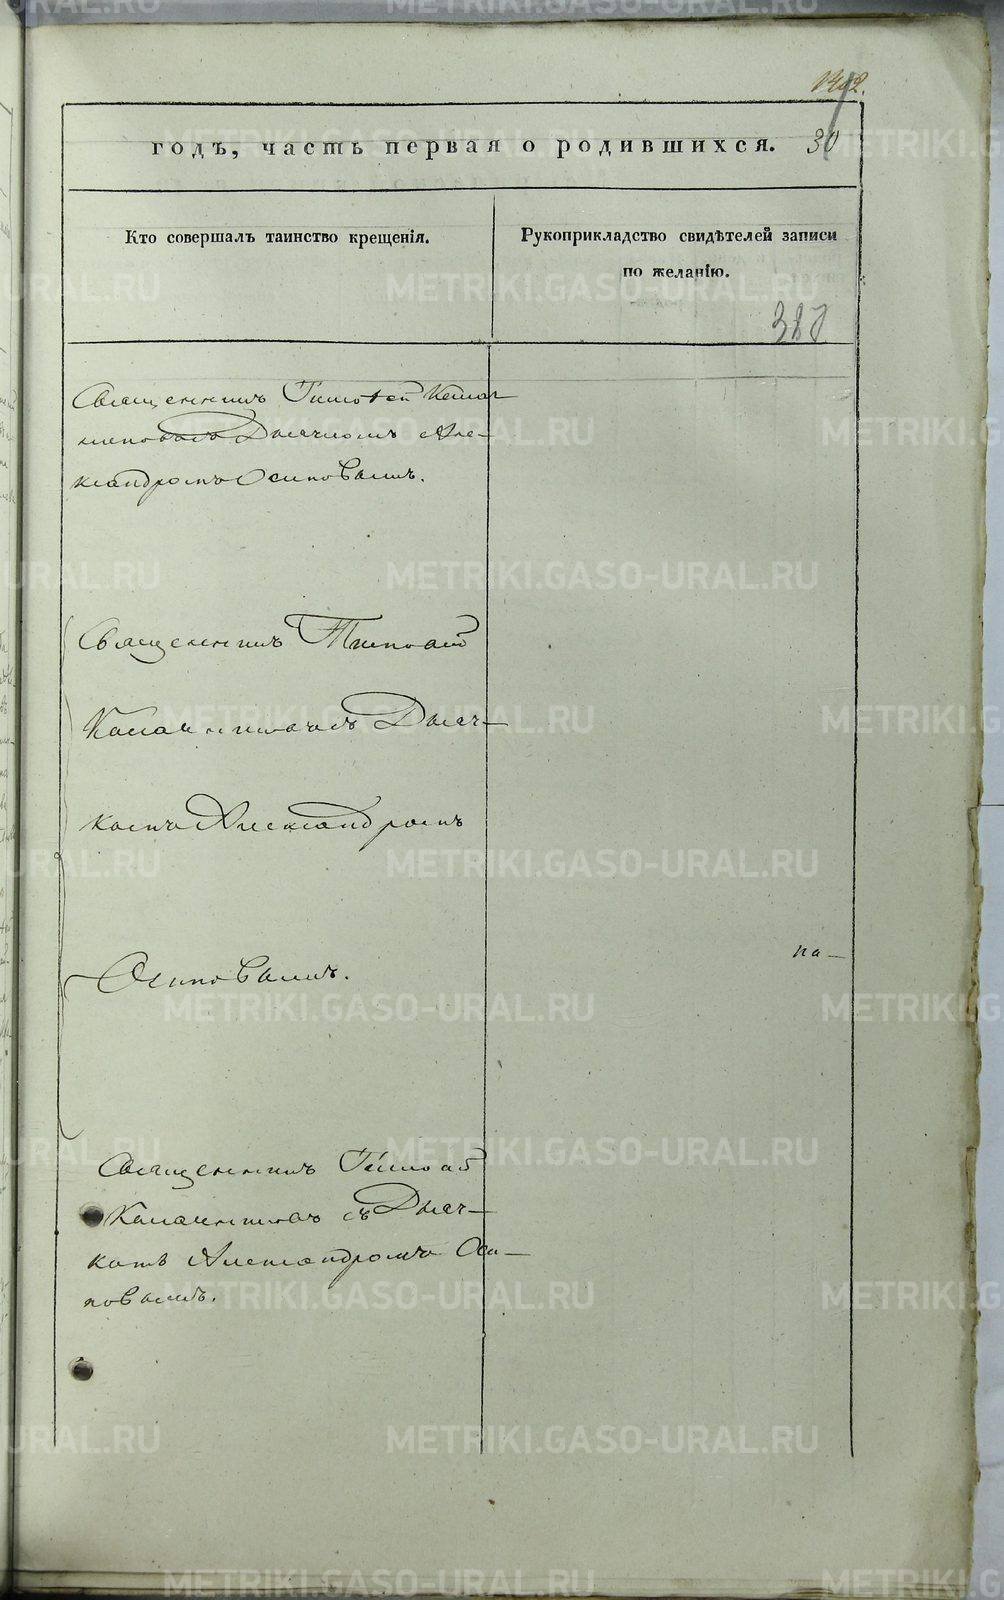 годъ, часть первая о родившихся. 30
Кто совершалъ таинство крещенія.
Рукоприкладство свидѣтелей записи
по желанію.
Священникъ Тимофей
Дьячкомъ Але-
ксандромъ Осиповымъ.
Священникъ Тимофей
Дьяч-
комъ Александромъ
Осиповымъ.
на-
Священникъ Тимофей
съ Дьяч-
комъ Александромъ Оси-
повымъ.
METRIKI.GASO-URAL.RU